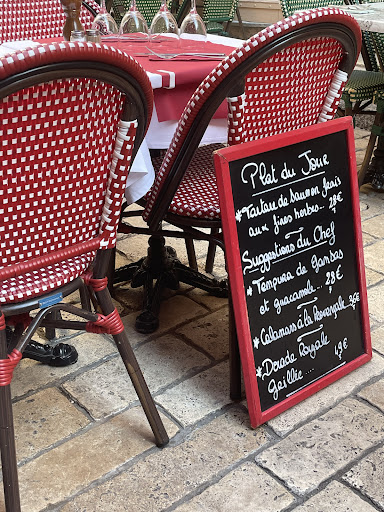 Plat du Jour
*Tartare de saumon frais
aux fines herbes.. 28€
Suggestions du Chef
*Tempura de Gambas
et guacamole... 28€
*Calamars à la Provençale 36€
*Dorade Royale
Grillée .... 49€